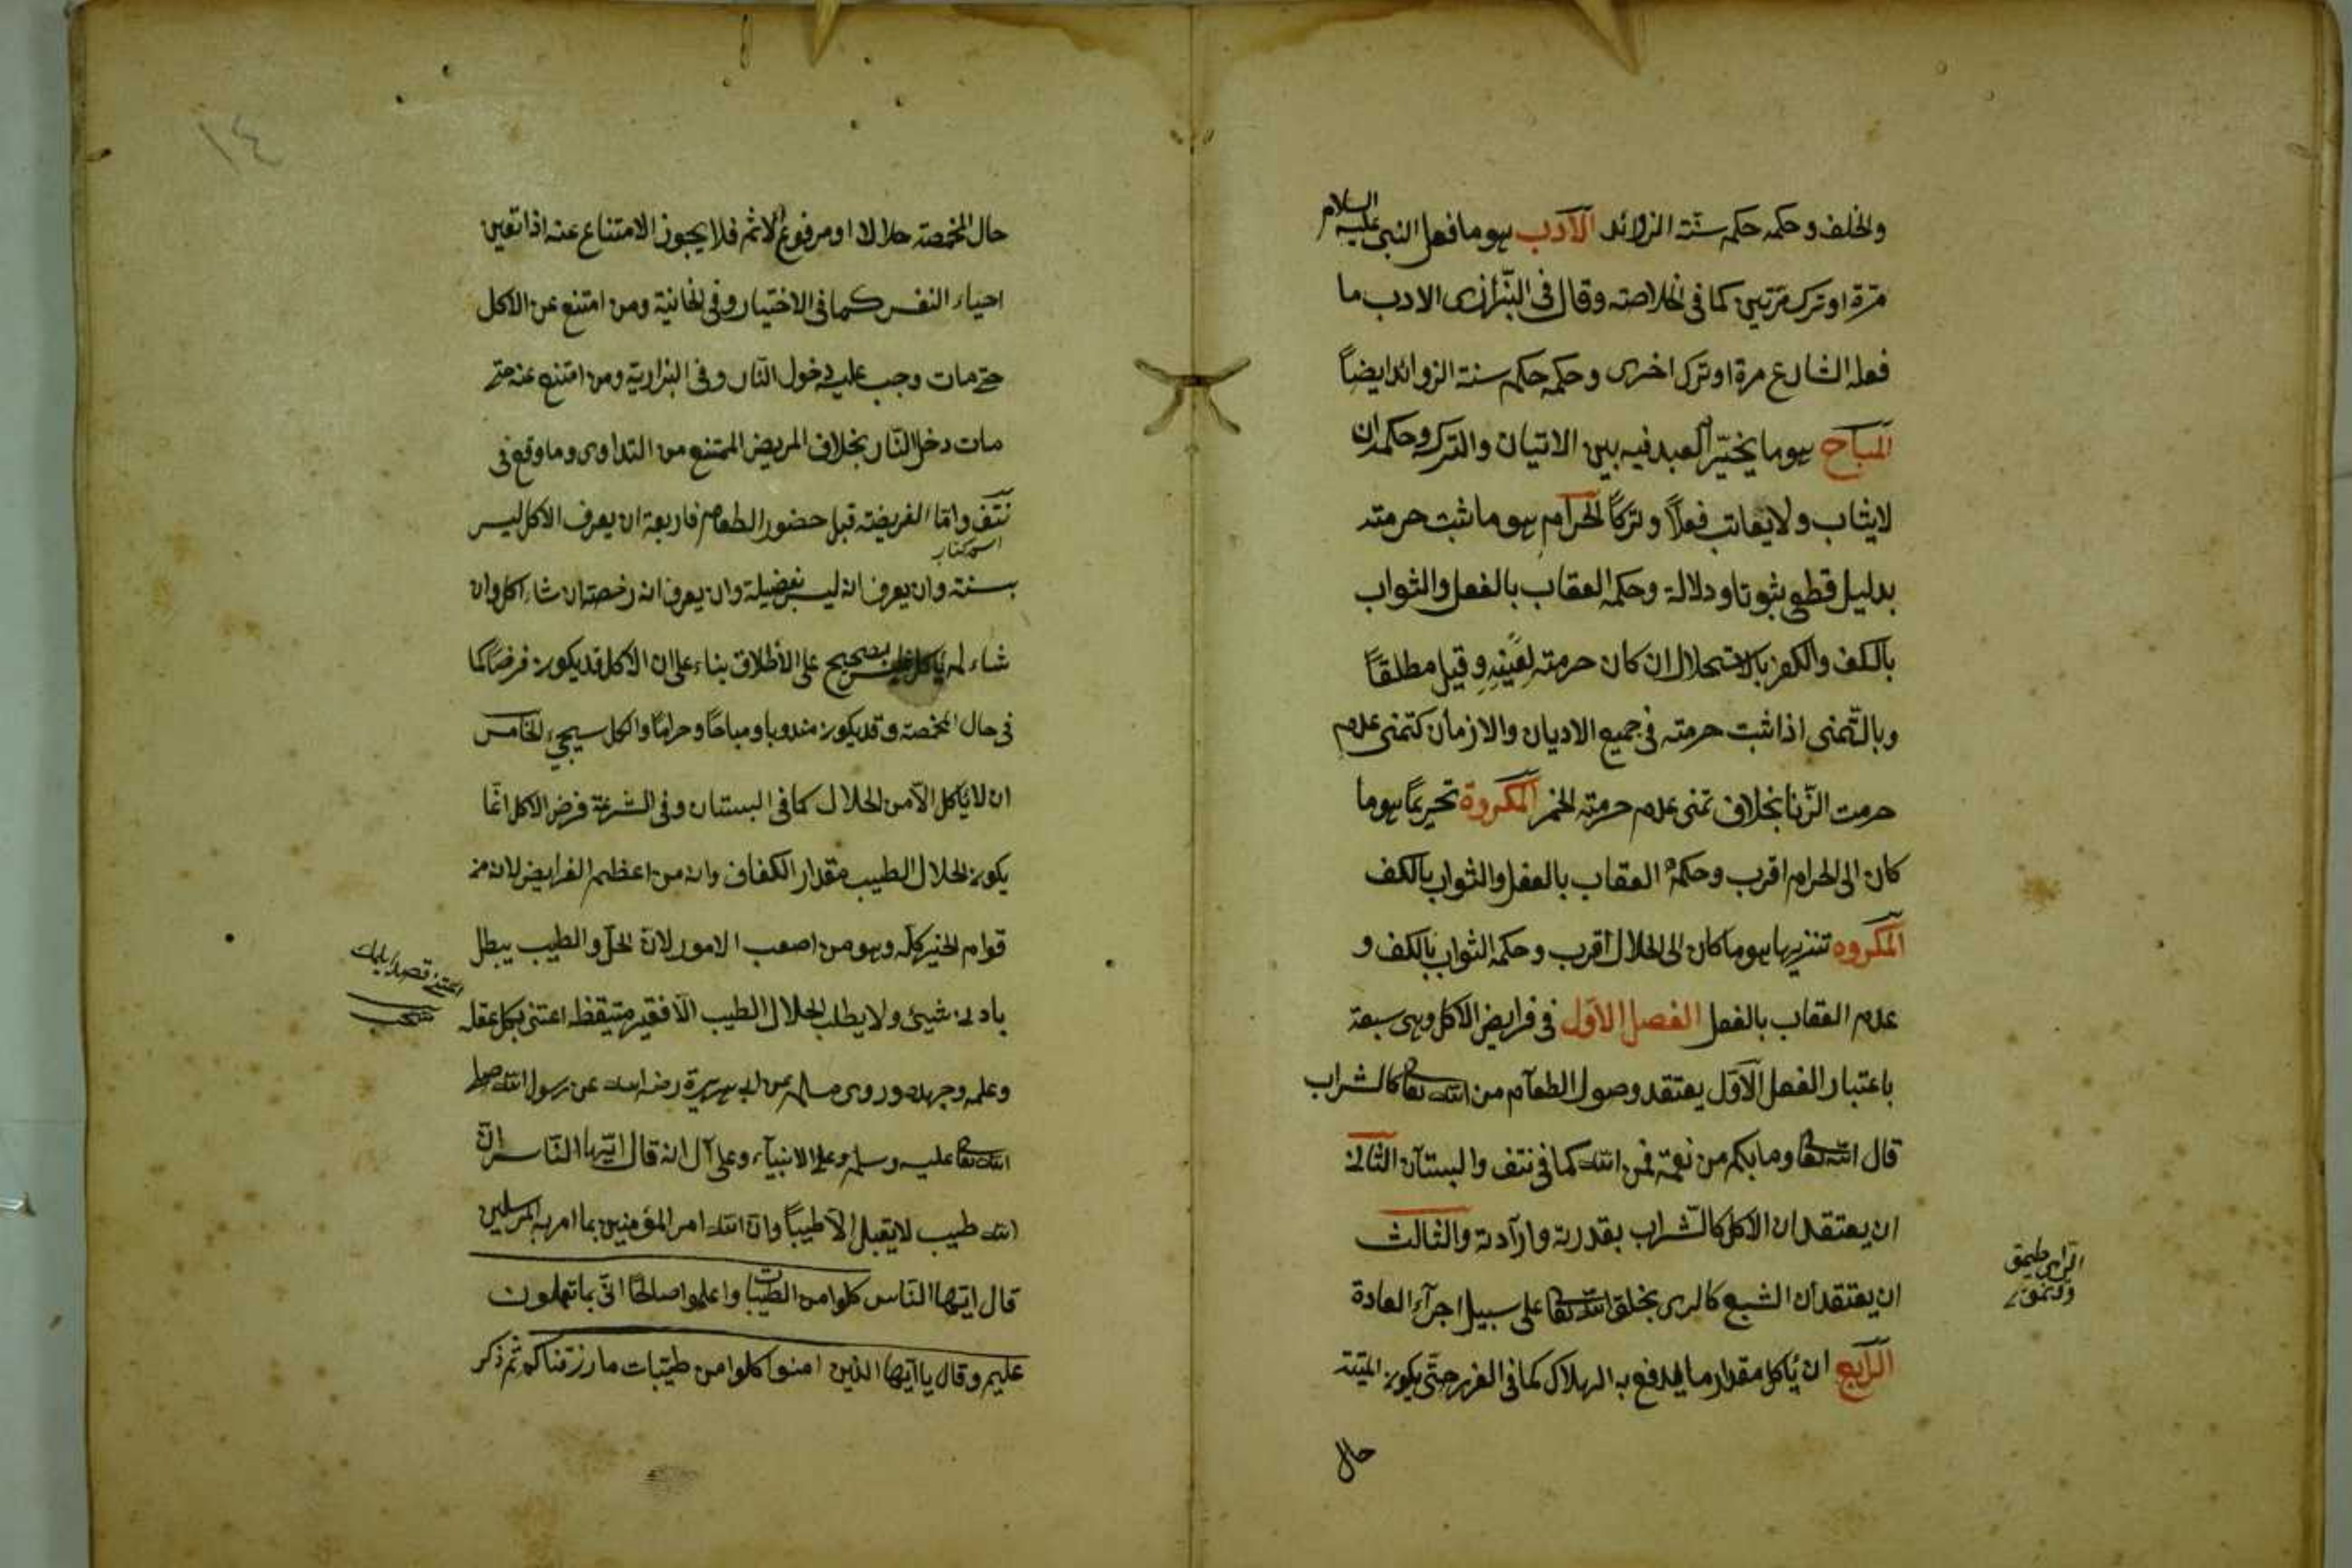 والخلف وحكمه حكم سنة الزوائد الآدب هو ما فعل النبى عليه السلام
مرّة او ترك مرّتين كما فى الخلاصة وقال فى البزّازى الادب ما
فعله الشارع مرة او ترك اخرى وحكمه حكم سنة الزوائد ايضاً
المباح هو ما يخيّر العبد فيه بين الاتيان والترك وحكمه ان
لا يثاب ولا يعاتب فعلاً وتركاً الحرام هو ما ثبت حرمته
بدليل قطعى ثبوتا ودلالة وحكمه العقاب بالفعل والثواب
بالكف والكفر بالاستحلال ان كان حرمته لعينه وقيل مطلقاً
وبالتّمنى اذا ثبت حرمته فى جميع الاديان والازمان كتمنى عدم
حرمت الزّنا بخلاف تمنى عدم حرمة الخمر المكروة تحريمًا هو ما
كان الى الحرام اقرب وحكمه العقاب بالفعل والثواب بالكف
المكروه تنزيها هو ما كان الى الحلال اقرب وحكمه الثواب بالكف و
عدم العقاب بالفعل الفصل الاوّل فى فرايض الاكل وهى سبعة
باعتبار الفصل الاوّل يعتقد وصول الطعام من الله تعا كالشراب
قال الله تعا وما بكم من نعمة فمن الله كما فى نتف والبستان الثانى
ان يعتقد ان الاكل كالشراب بقدرته وارآدته والثالث
ان يعتقد ان الشبع كالرى بخلق الله تعا على سبيل اجرآء العادة
الرّابع ان يأكل مقدار ما يدفع به الهلاك كما فى الغرر حتّى يكون الميتة
حال
١٤
حال المخمصة حلالا او مرفوع الاثم فلا يجوز الامتناع عنه اذا تعين
احياء النفس كما فى الاختيار وفى الخانية ومن امتنع عن الاكل
حتى مات وجب عليه دخول النّار وفى البزازية ومن امتنع عنه حتى
مات دخل النّار بخلاف المريض الممتنع من التداوى وما وقع فى
نتف وامّا الفريضة قبل حضور الطعام فاربعة ان يعرف الاكل ليس
اسم كتاب
بسنة وان يعرف انه ليس بفضيلة وان يعرف انه رخصة ان شاء اكل وان
شاء لم يأكل فليس بصحيح على الأطلاق بناء على ان الاكل قد يكون فرضاً كما
فى حال المخمصة وقد يكون مندوبا ومباحًا وحرامًا والكل سيجئ الخامس
ان لا يأكل الّا من الحلال كما فى البستان وفى الشرعة فرض الاكل انّما
يكون الحلال الطيب مقدار الكفاف وانه من اعظم الفرايض لانه من
قوام الخير كلّه وهو من اصعب الامور لانّ الحلّ والطيب يبطل
بادنى شيئ ولا يطلب الحلال الطيب الّا فقير متيقظ اعتنى بكل عقله
وعلمه وجهده وروى مسلم عن ابى هريرة رضه الله عن رسول الله صلى
الله تعا عليه وسلم وعلى الانبيآء وعلى آل انه قال ايّها النّاس انّ
الله طيب لا يقبل الّا طيباً وانّ الله امر المؤمنين بما امر به المرسلين
قال ايّها النّاس كلوا من الطيّبات واعملوا صالحًا انّى بما تعملون
عليم وقال يا ايّها الذين امنوا كلوا من طيّبات ما رزقناكم ثم ذكر